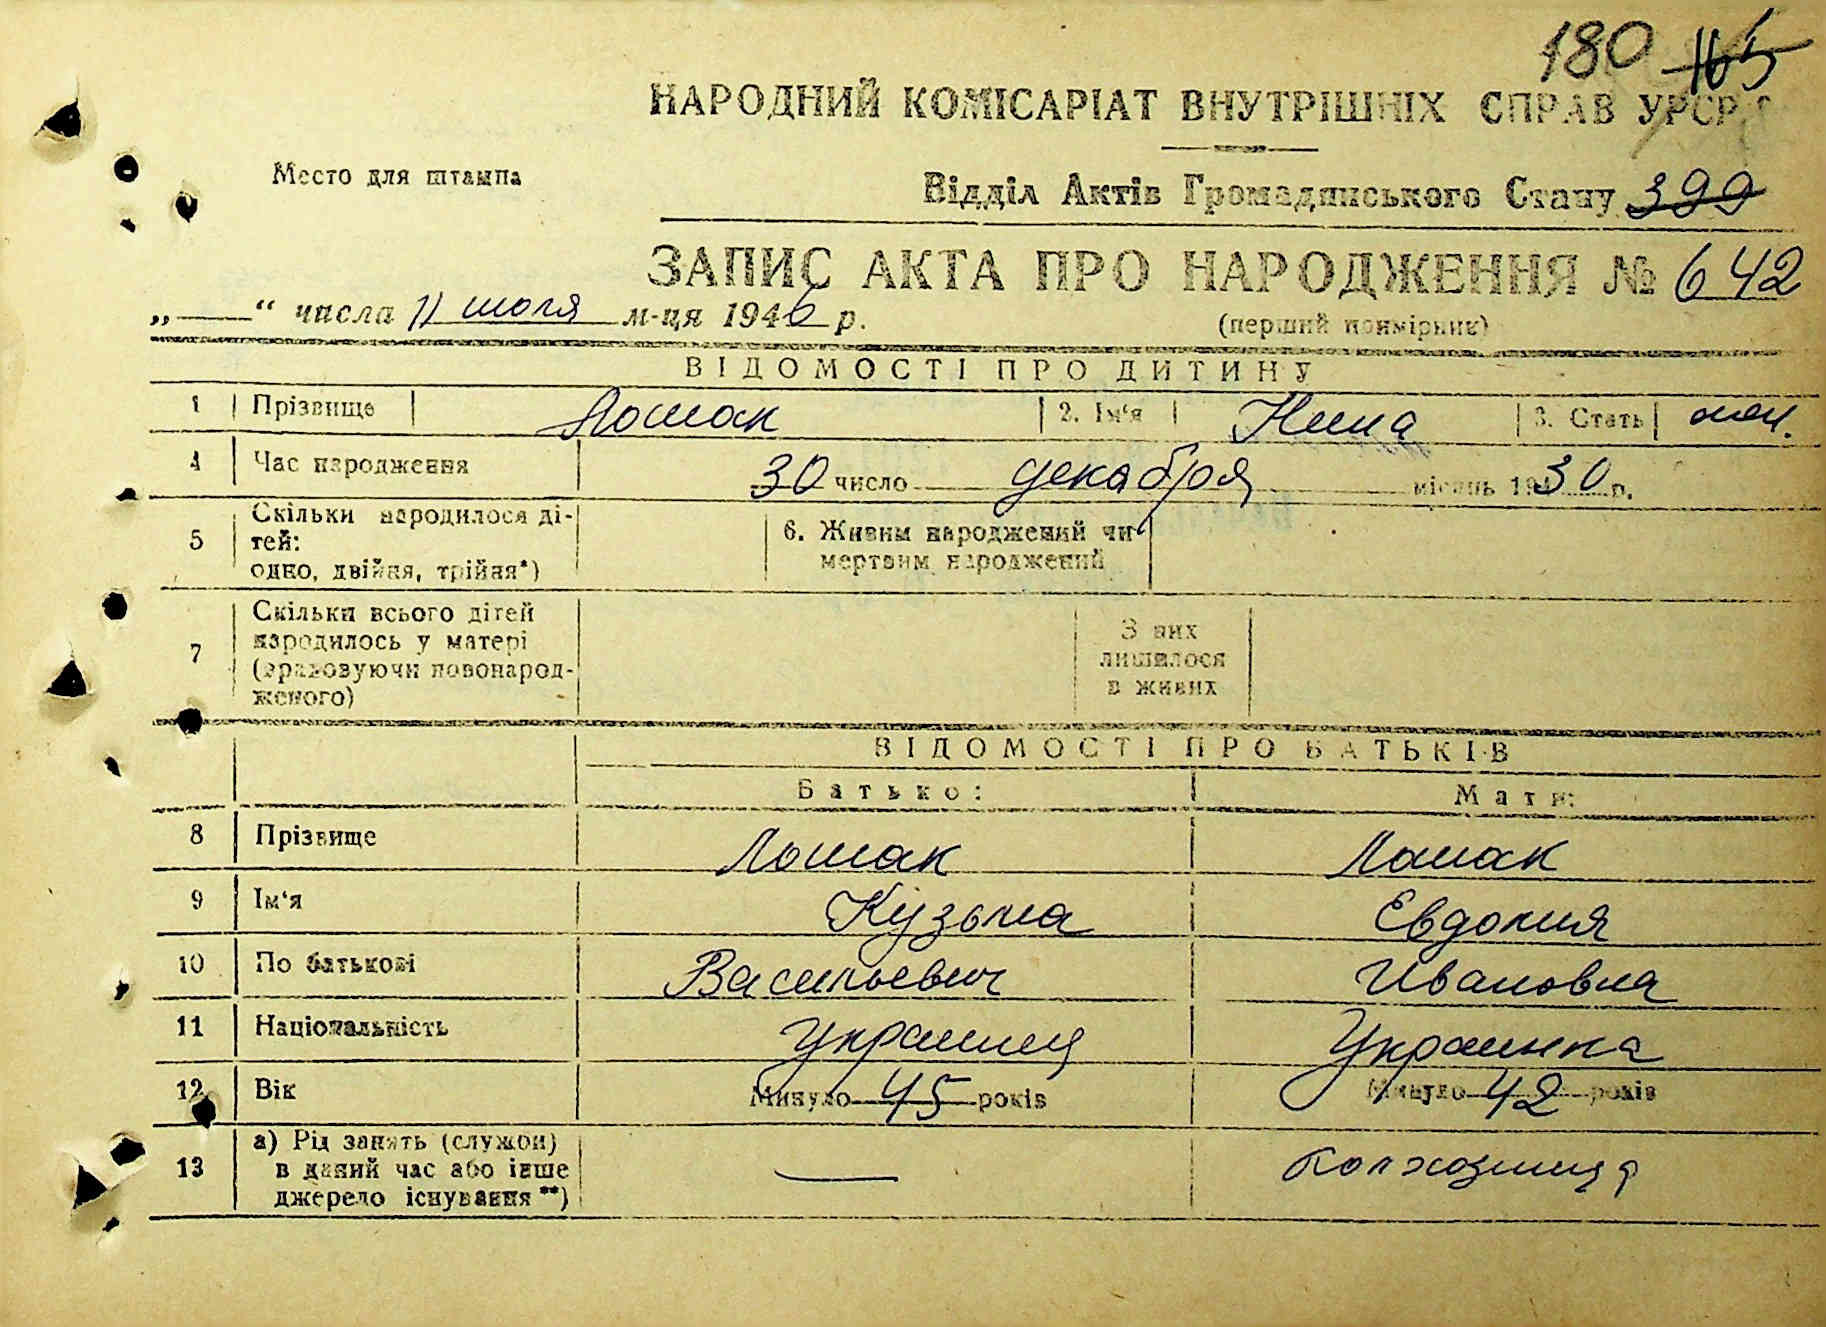 180 165
НАРОДНИЙ КОМІСАРІАТ ВНУТРІШНІХ СПРАВ УРСР
Место для штампа
Відділ Актів Громадянського Стану 399
ЗАПИС АКТА ПРО НАРОДЖЕННЯ № 642
„—“ числа 11 июля м-ця 1946 р.
(перший примірник)
ВІДОМОСТІ ПРО ДИТИНУ
1 Прізвище Лошак 2. Ім'я Нина 3. Стать жен.
4 Час народження 30 число декабря місяць 1930 р.
5 Скільки народилося ді-
тей:
одно, двійня, трійня*)
6. Живим народжений чи
мертвим народжений
7 Скільки всього дітей
народилось у матері
(враховуючи новонарод-
женого)
З них
лишилося
в живих
ВІДОМОСТІ ПРО БАТЬКІВ
Батько: Мати:
8 Прізвище Лошак Лошак
9 Ім'я Кузьма Евдокия
10 По батькові Васильевич Ивановна
11 Національність Украинец Украинка
12 Вік Минуло 45 років Минуло 42 років
13 а) Рід занять (служби)
в даний час або інше
джерело існування**)
— колхозница